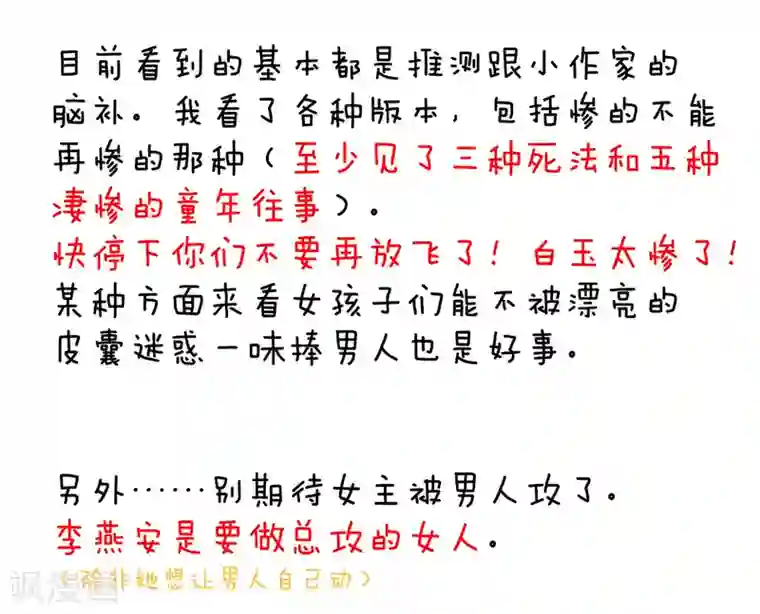 目前看到的基本都是推测跟小作家的
脑补。我看了各种版本，包括惨的不能
再惨的那种（至少见了三种死法和五种
凄惨的童年往事）。
快停下你们不要再放飞了！白玉太惨了！
某种方面来看女孩子们能不被漂亮的
皮囊迷惑一味捧男人也是好事。
另外……别期待女主被男人攻了。
李燕安是要做总攻的女人。
（除非她想让男人自己动）
飒漫画